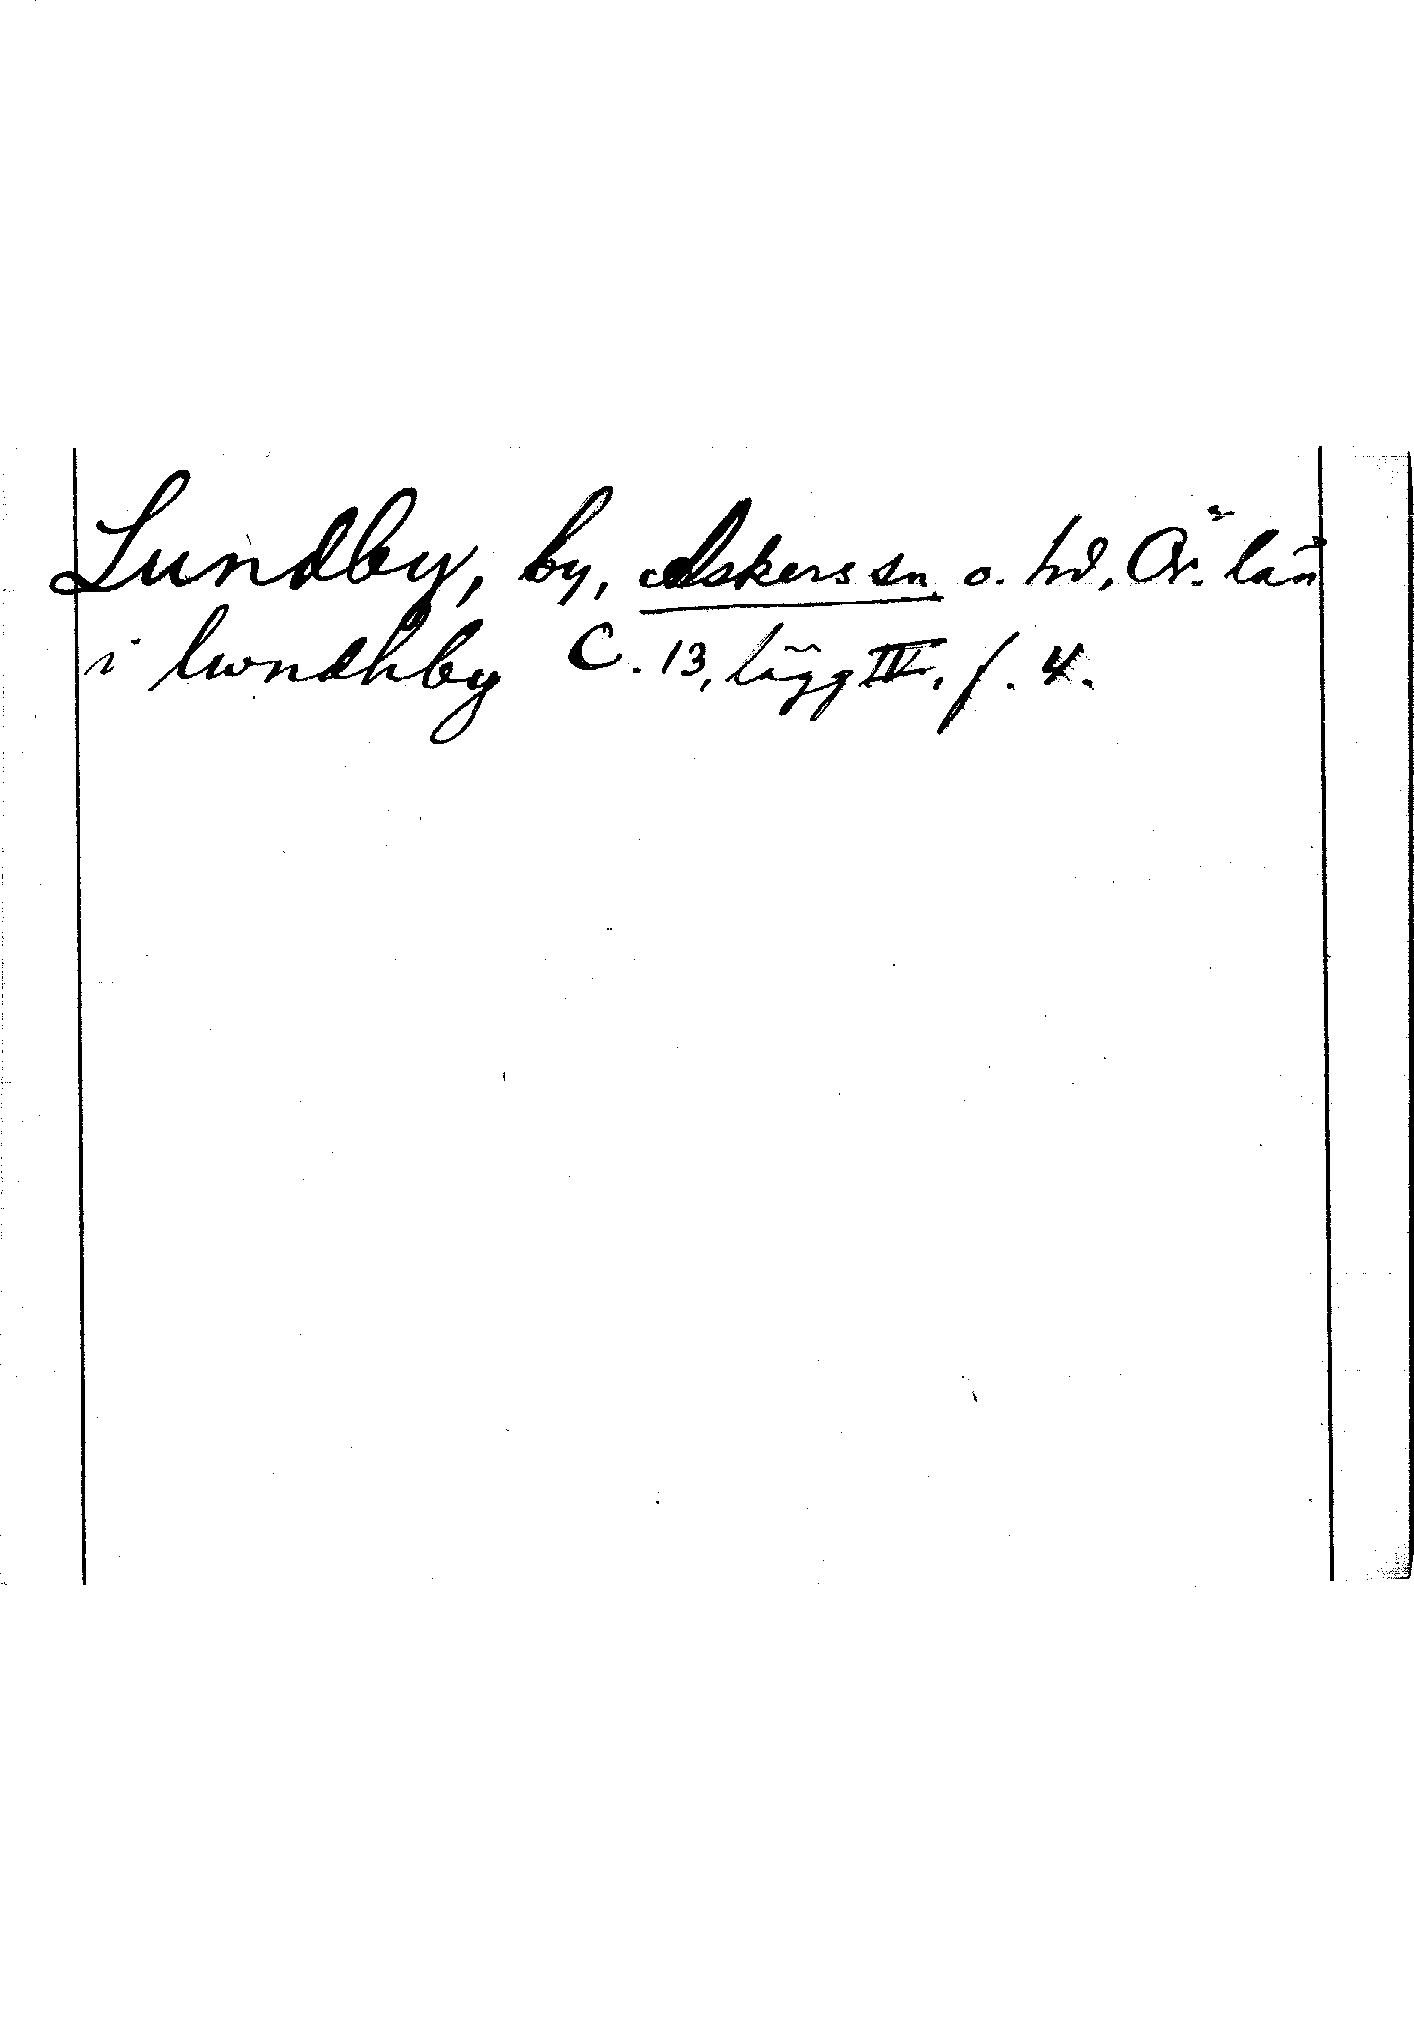 Lundby, by, Askers sn. o. hd, Ör. län
i lwndhby C. 13, lägg IV, f. 4.